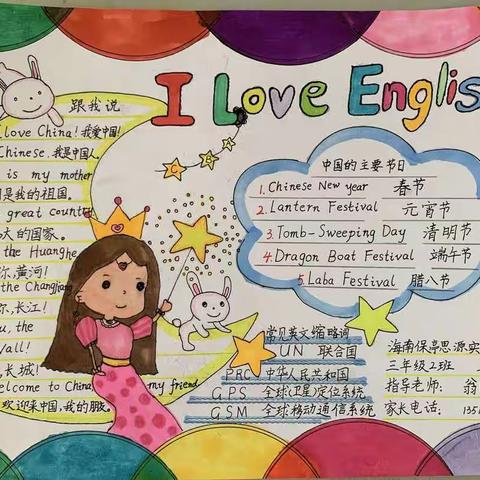 I Love Englis
跟我说
love China! 我爱中国!
Chinese, 我是中国人.
is my mother
是我的祖国。
great countr
大的国家。
the Huanghe
你,黄河!
the Changjian
你,长江!
u, the
Wall!
,长城!
elcome to China my friend
欢迎来中国,我的朋友.
A
B
C
中国的主要节日
1. Chinese New year 春节
2. Lantern Festival 元宵节
3. Tomb-Sweeping Day 清明节
4. Dragon Boat Festival 端午节
5. Laba Festival 腊八节
常见英文缩略词
UN 联合国
PRC 中华人民共和国
GPS 全球卫星定位系统
GSM 全球移动通信系统
海南保亭思源实
三年级2班
指导老师: 翁
家长电话: 135